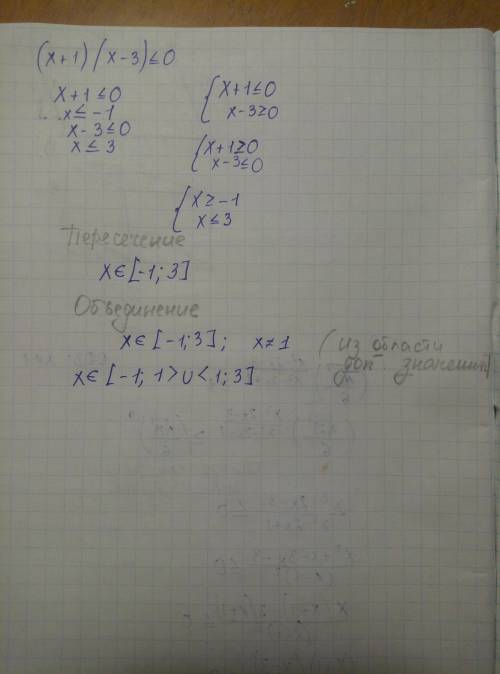 (x+1)(x-3)≤0
x+1≤0
x≤-1
x-3≤0
x≤3
{x+1≤0
x-3≥0
{x+1≥0
x-3≤0
{x≥-1
x≤3
Пересечение
x∈[-1;3]
Объединение
x∈[-1;3]; x≠1 (из области
доп. значений)
x∈[-1; 1>∪<1; 3]